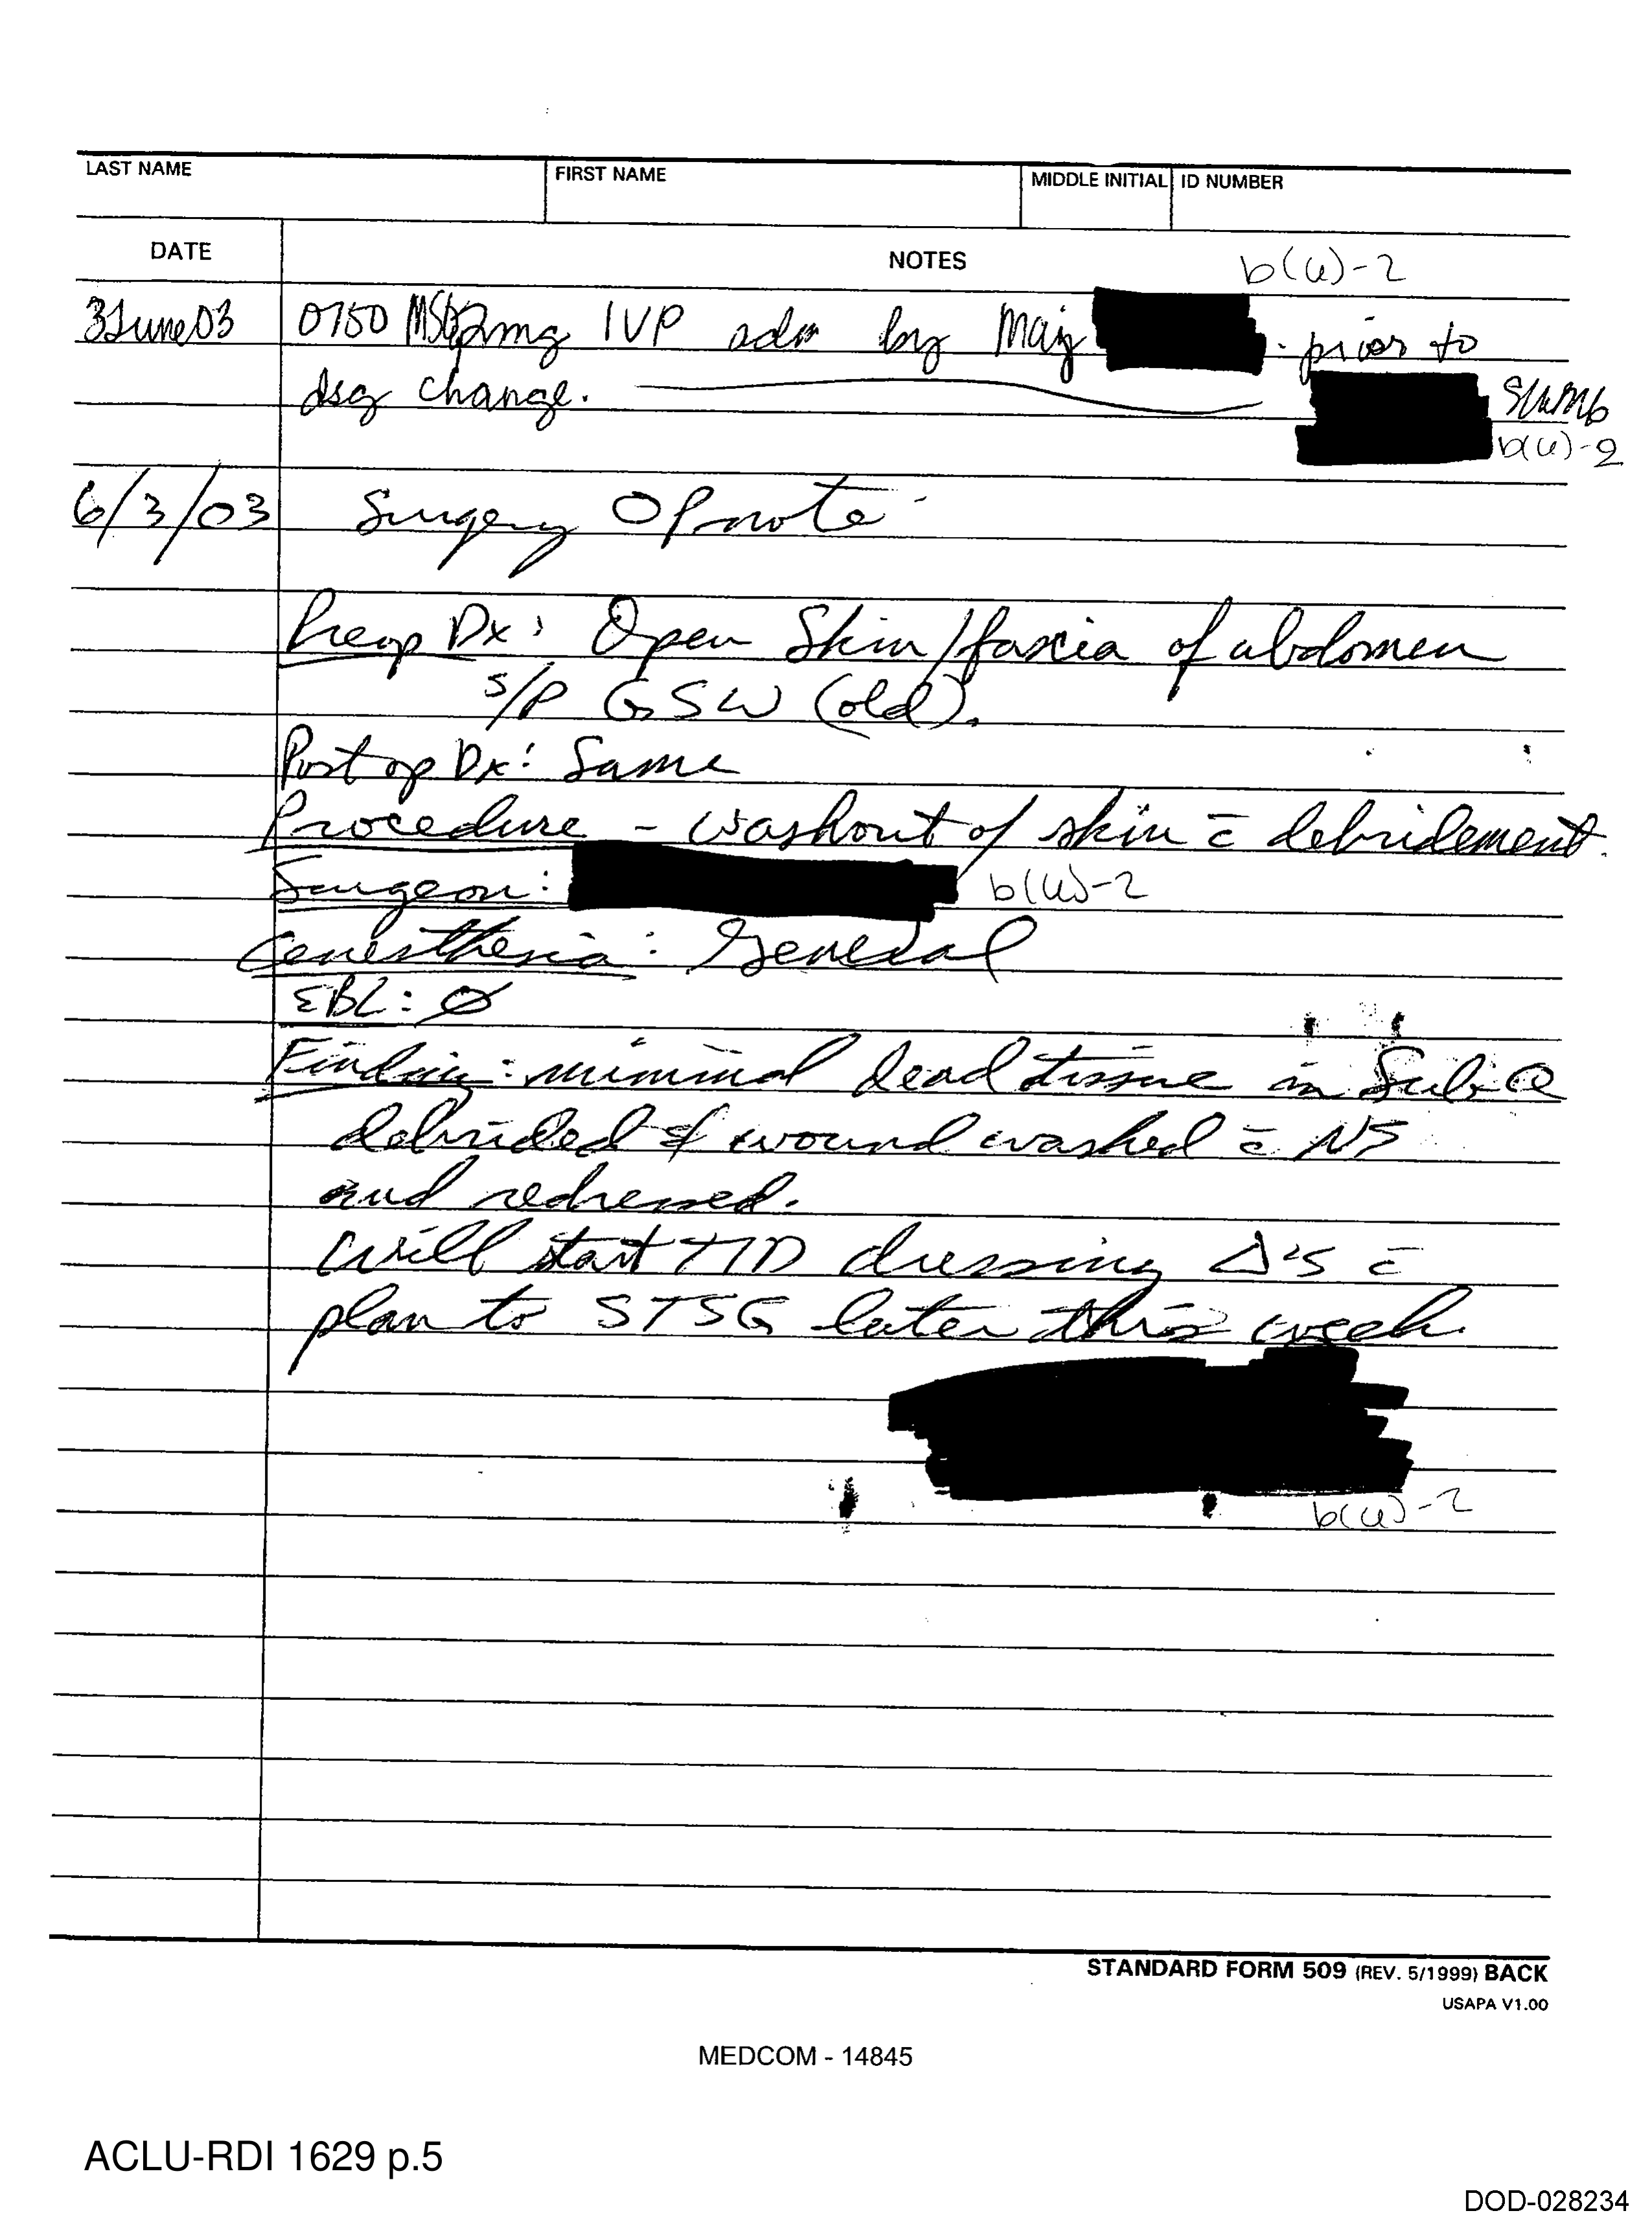 LAST NAME FIRST NAME MIDDLE INITIAL ID NUMBER
DATE NOTES b(6)-2
3June03 0750 2mg IVP adm by Maj prior to
dsg change.
b(6)-2
6/3/03 Surgery OP note
Preop Dx: Open Skin/fascia of abdomen
S/P GSW (old).
Post op Dx: Same
Procedure - washout of skin c̄ debridement.
Surgeon: b(6)-2
Anesthesia: General
EBL: Ø
Finding: minimal dead tissue in SubQ
debrided & wound washed c̄ NS
and redressed.
Will start TID dressing Δ's c̄
plan to STSG later this week.
b(6)-2
STANDARD FORM 509 (REV. 5/1999) BACK
USAPA V1.00
MEDCOM - 14845
ACLU-RDI 1629 p.5
DOD-028234